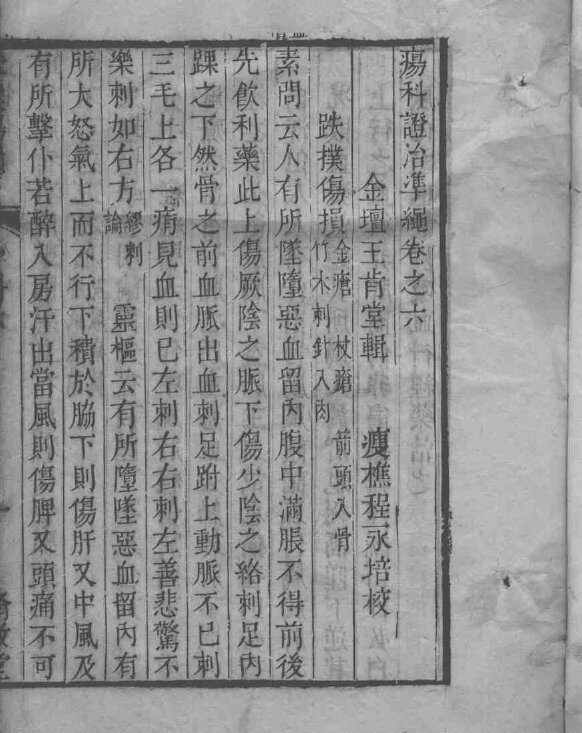 瘍科證治準繩卷之六
金壇王肯堂輯 瘦樵程永培校
跌撲傷損 金瘡 杖瘡 箭頭入骨 竹木刺針入肉
素問云人有所墜墮惡血留內腹中滿脹不得前後
先飲利藥此上傷厥陰之脈下傷少陰之絡刺足內
踝之下然骨之前血脈出血刺足跗上動脈不已刺
三毛上各一痏見血則已左刺右右刺左善悲驚不
樂刺如右方 繆刺論 靈樞云有所墮墜惡血留內有
所大怒氣上而不行下積於脇下則傷肝又中風及
有所擊仆若醉入房汗出當風則傷脾又頭痛不可